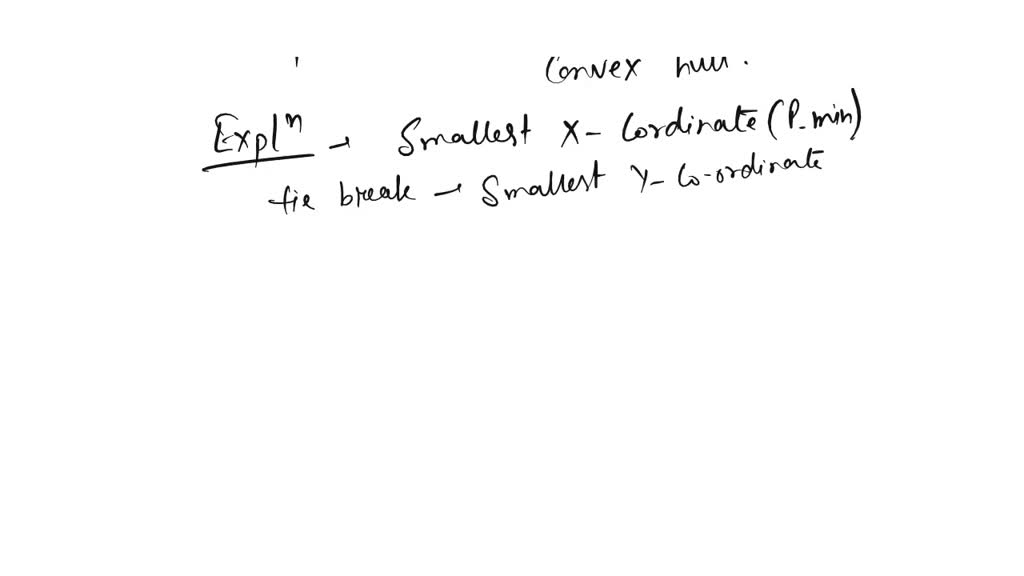 Convex hull.
Expl^n → Smallest X- Cordinate (P_min)
tie break → Smallest Y- Co-ordinate